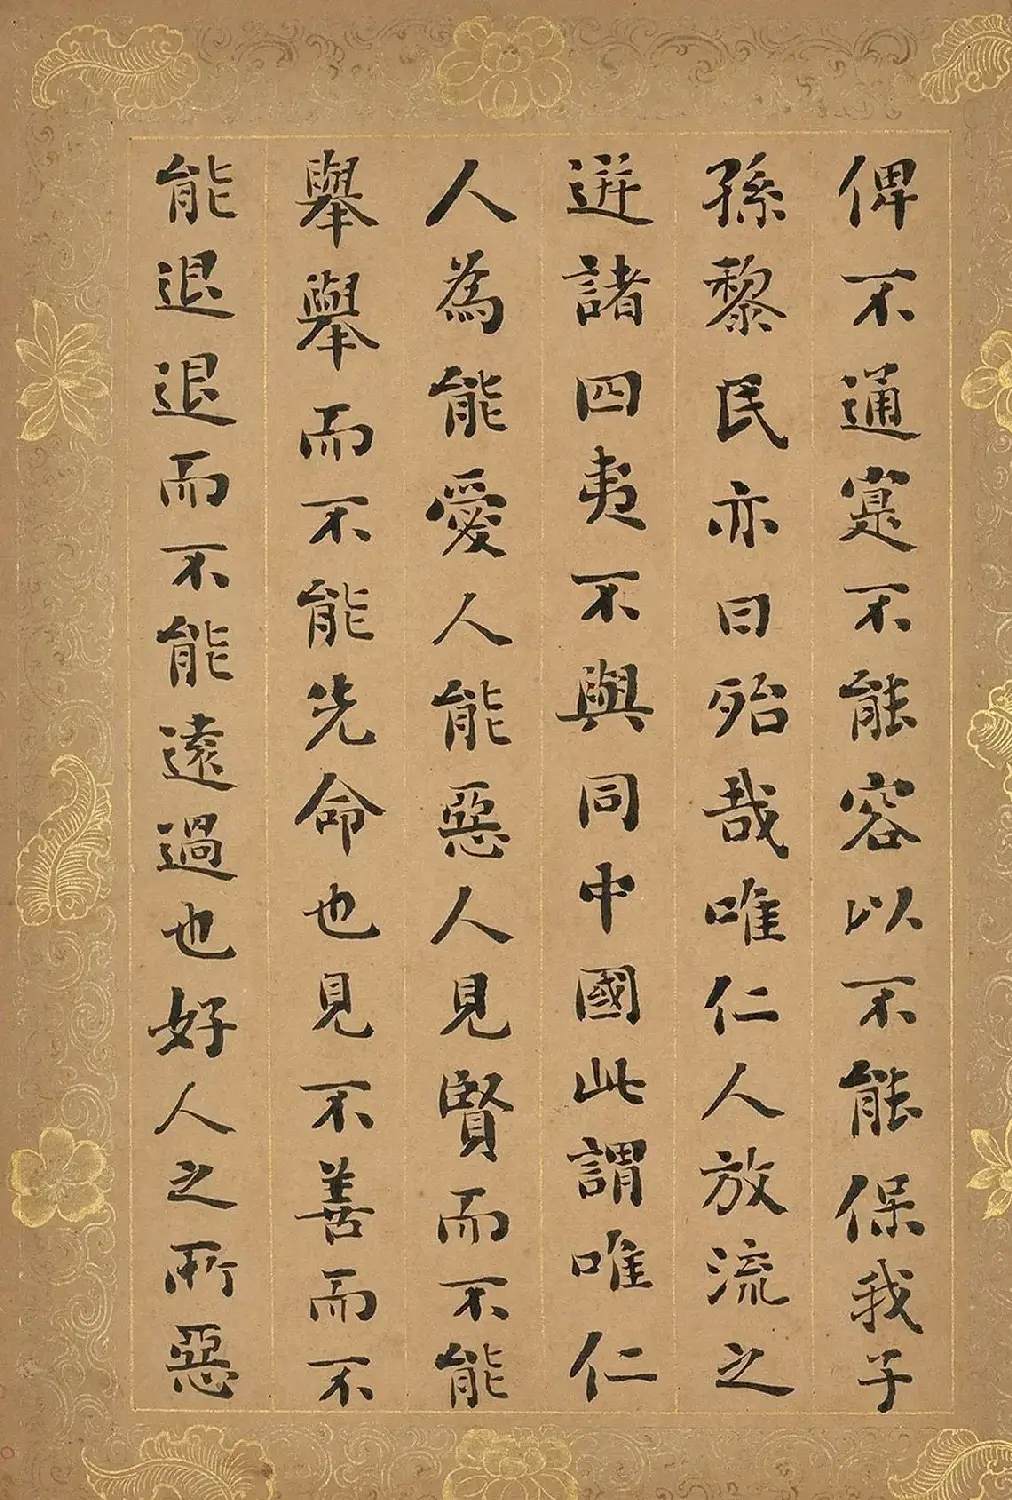 俾不通寔不能容以不能保我子
孫黎民亦曰殆哉唯仁人放流之
迸諸四夷不與同中國此謂唯仁
人為能愛人能惡人見賢而不能
舉舉而不能先命也見不善而不
能退退而不能遠過也好人之所惡